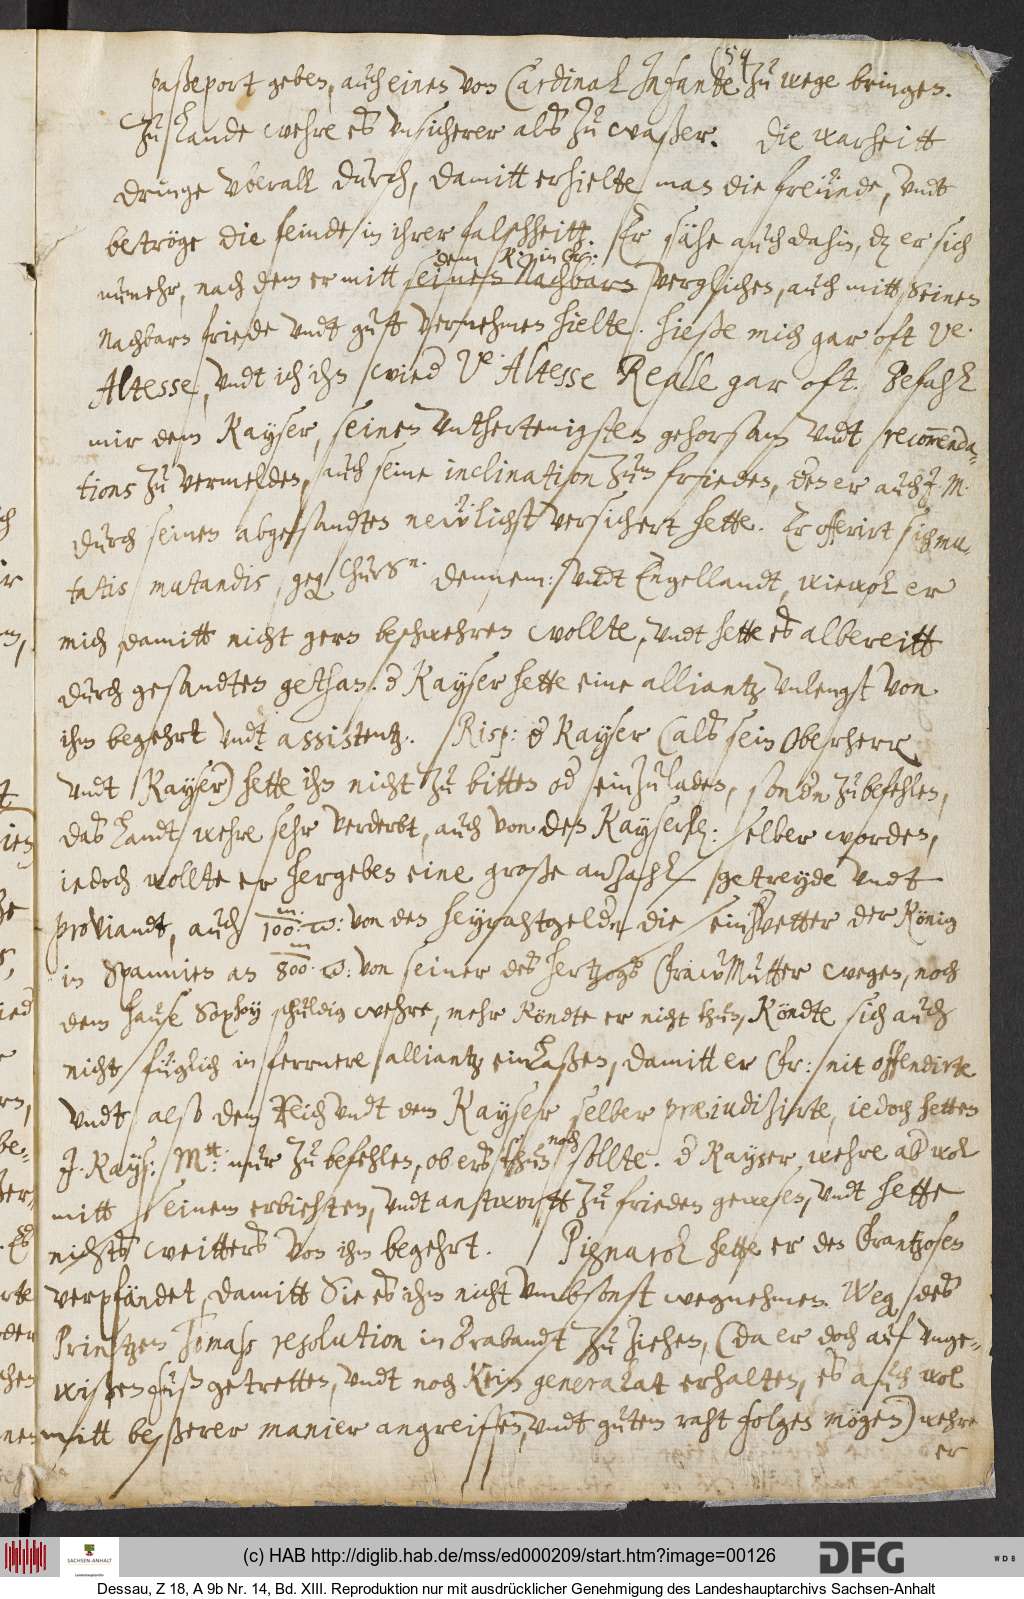 (59
paßeport geben, auch einen von Cardinal Infante zu wege bringen.
Zu Lande wehre es unsicherer als zu waßer. Die warheitt
dringe uberall durch, damitt erhielte man die freünde, undt
betröge die feinde in ihrer falschheitt. Er sähe auch dahin, dz er sich
dem König in Fr:
numehr, nach dem er mitt seinen Nachbarn verglichen, auch mitt seinen
Nachbarn friede undt gutt vernehmen hielte. Hieße mich gar oft Ve.
Altesse, undt ich ihn wied Ve. Altesse Realle gar oft. Befahl
mir dem Kayser, seinen unthertenigsten gehorsam undt recommenda-
tions zu vermelden, auch seine inclination zum frieden, den er auch J. M.
durch seinen abgesandten neülichst versichert hette. Er offerirt sich mu-
tatis mutandis, geg Chur Sn. Dennem: undt Engellandt, wiewol er
mich damitt nicht gern beschwehren wollte, undt hette es albereitt
durch gesandten gethan. d Kayser hette eine alliantz unlengst von
ihm begehrt undt assistentz. Risp: d Kayser (als sein Oberherr
undt Kayser) hette ihn nicht zu bitten od einzuladen, sondn zu befehlen,
das Landt wehre sehr verderbt, auch von den Kayserl: selber worden,
iedoch wollte er hergeben eine große anzahl getreyde undt
proviandt, auch 100 m. w: von den heyrahtgeldn die sein vetter der König
in Spannien an 800 m w: von seiner des Hertzogs Fraw Mutter wegen, noch
dem hause Sophoy schuldig wehre, mehr köndte er nicht thun, Köndte sich auch
nicht füglich in fernere alliantz einlaßen, damitt er Fr: nit offendirte
undt also dem Reich undt dem Kayser selber præjudizirte, iedoch hetten
J. Kays: Mtt: nur zu befehlen, ob ers thun noch sollte. d Kayser wehre ab wol
mitt seinem erbiehten, undt antwortt zu frieden gewesen, undt hette
nichts weitters von ihm begehrt. Pignarol hette er den Frantzosen
verpfändet, damitt Sie es ihm nicht umbsonst wegnehmen. Weg. des
Printzen Tomaß resolution in Brabandt zu ziehen, (da er doch auf unge-
wißen fuß getretten, undt noch kein generalat erhalten, es auch wol
mitt beßerer manier angreiffen, undt gutem raht folgen mögen) wehre
er
(c) HAB http://diglib.hab.de/mss/ed000209/start.htm?image=00126
SACHSEN-ANHALT
DFG
WDB
Dessau, Z 18, A 9b Nr. 14, Bd. XIII. Reproduktion nur mit ausdrücklicher Genehmigung des Landeshauptarchivs Sachsen-Anhalt